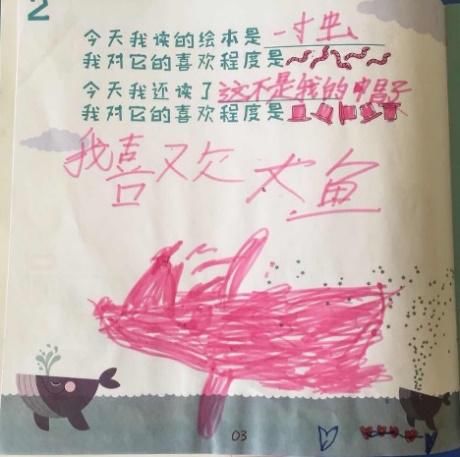 2
今天我读的绘本是一寸虫
我对它的喜欢程度是
今天我还读了这不是我的帽子
我对它的喜欢程度是
我喜欢大鱼
03